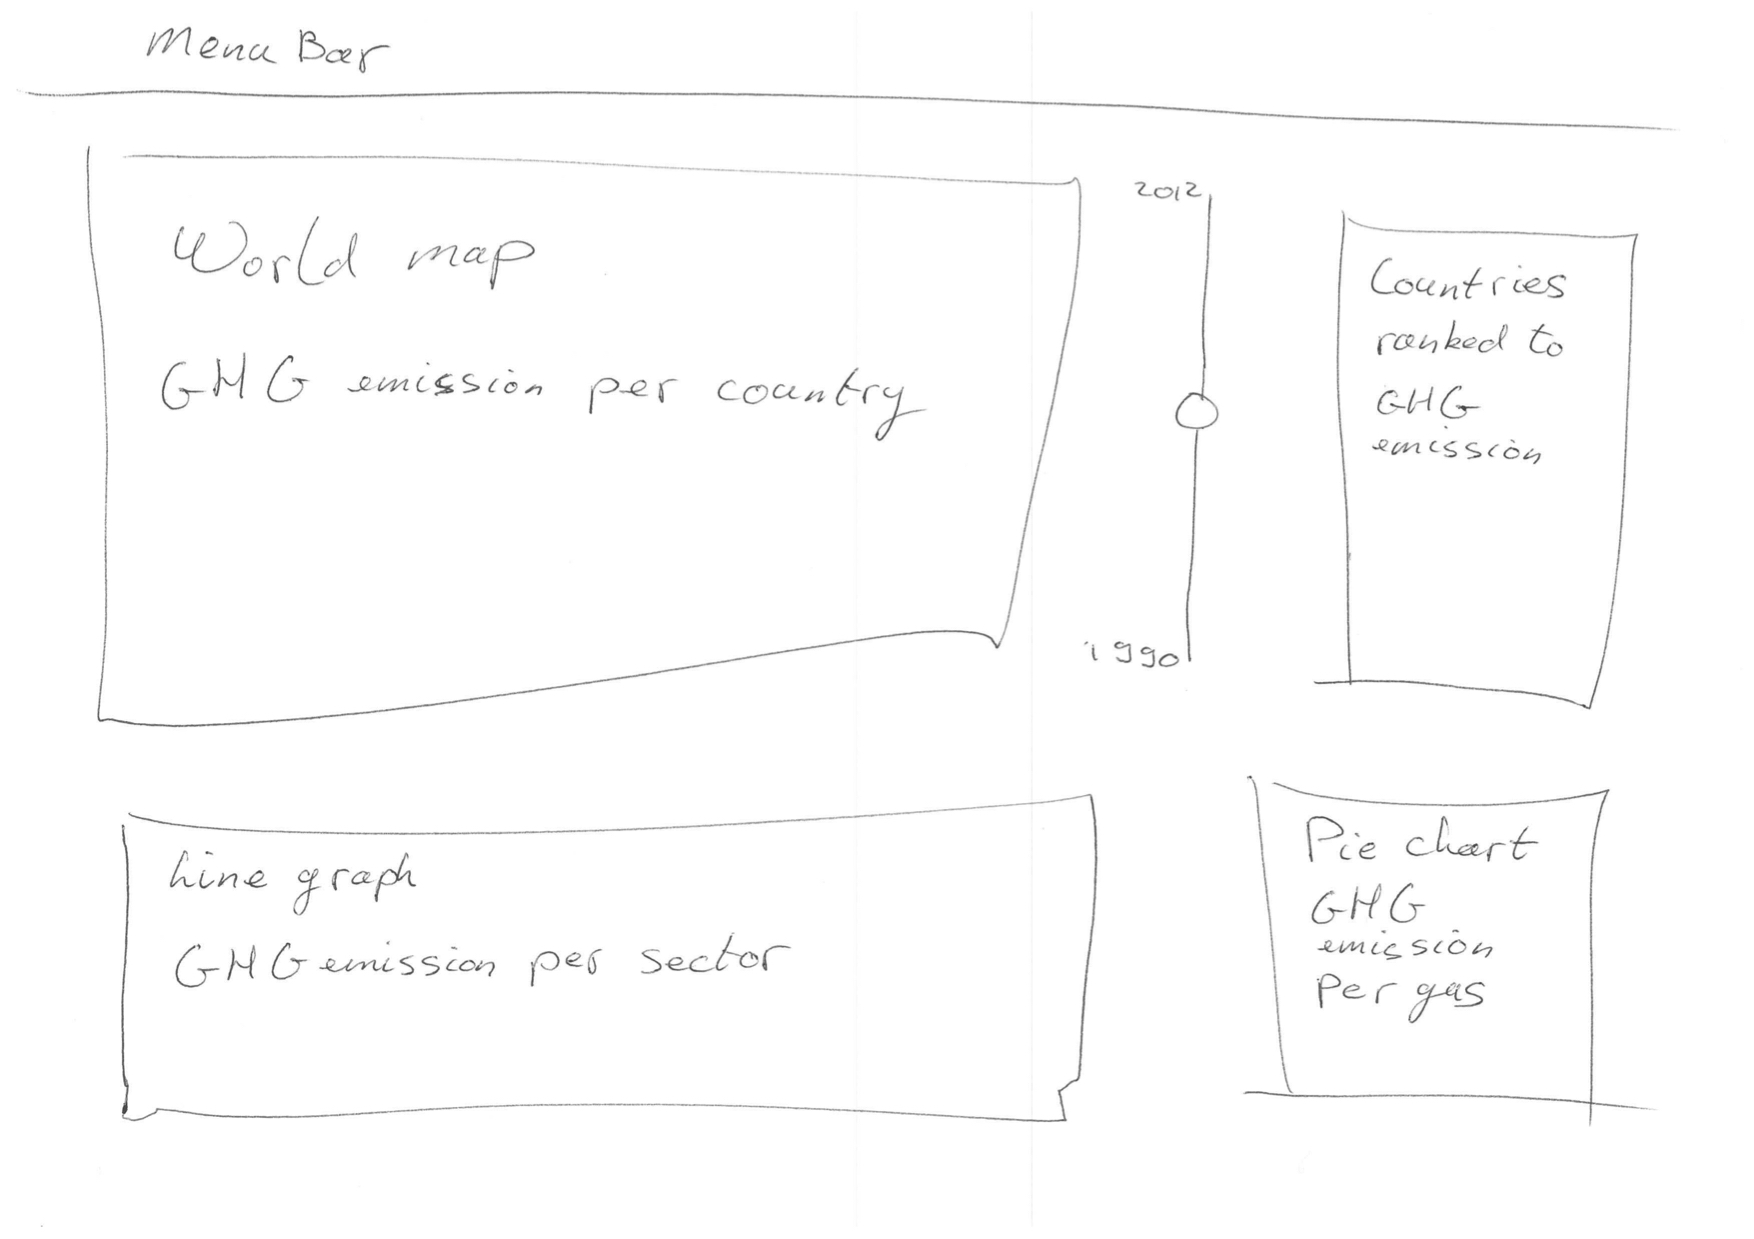 Menu Bar
World map
GHG emission per country
2012
1990
Countries
ranked to
GHG
emission
Line graph
GHG emission per sector
Pie chart
GHG
emission
Per gas